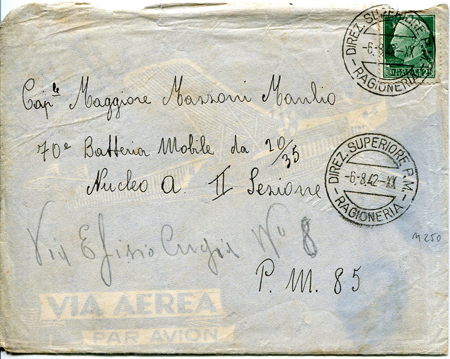 DIREZ. SUPERIORE
-6-8 XX
RAGIONERIA
Cap.le Maggiore Mazzoni Manlio
70e Batteria Mobile da 20/35
DIREZ. SUPERIORE P.M.
-6-8.42-XX
RAGIONERIA
Nucleo A. II Sezione
Via Efisio Cugia No 8
M250
P. M. 85
VIA AEREA
PAR AVION